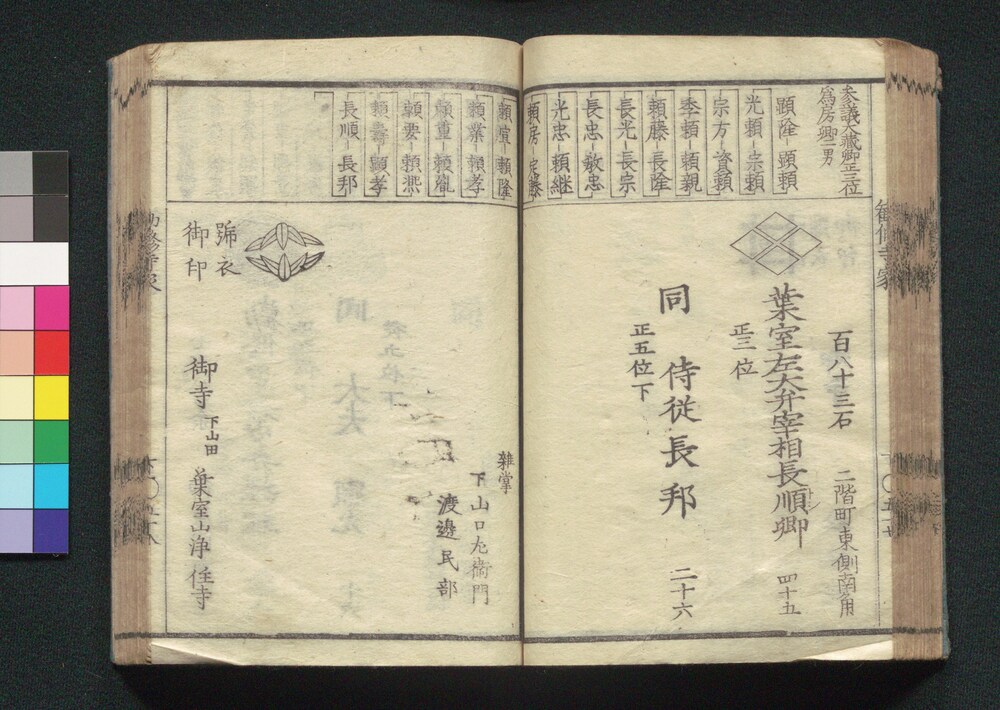 参議大蔵卿正三位
為房卿二男
顕隆 顕頼
光頼 宗頼
宗方 資頼
季頼 頼親
頼藤 長隆
長光 長宗
長忠 教忠
光忠 頼継
頼房 定藤
頼宣 頼隆
頼業 頼孝
頼重 頼胤
頼要 頼熈
頼壽 顕孝
長順 長邦
百八十三石 二階町東側南角
葉室左大弁宰相長順卿 四十五
正三位
同 侍従長邦 二十六
正五位下
雜掌
下山口左衛門
渡邉民部
號衣
御印
御寺 下山田 葉室山浄住寺